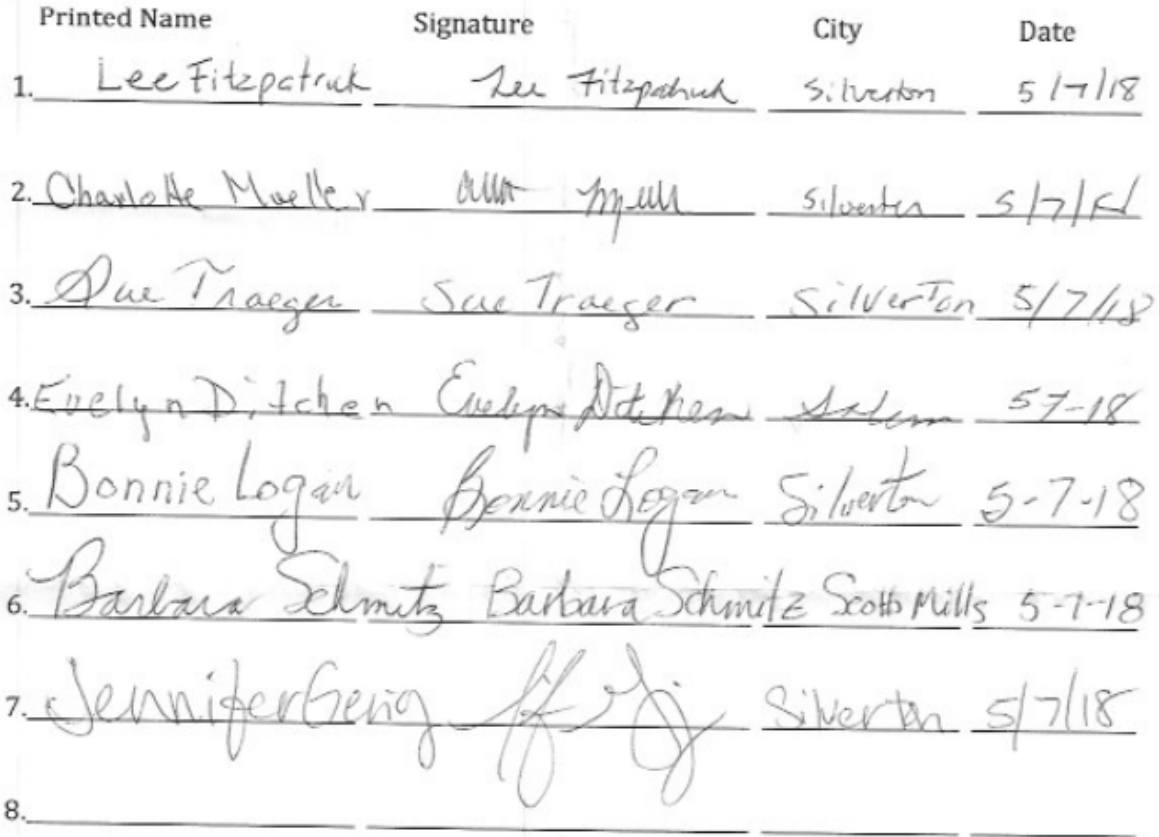 Printed Name Signature City Date
1. Lee Fitzpatrick Lee Fitzpatrick Silverton 5/7/18
2. Charlotte Mueller Silverton 5/7/18
3. Sue Traeger Sue Traeger Silverton 5/7/18
4. Evelyn Ditchen Evelyn Ditchen Salem 5-7-18
5. Bonnie Logan Bonnie Logan Silverton 5-7-18
6. Barbara Schmitz Barbara Schmitz Scotts Mills 5-7-18
7. Jennifer Gerig Silverton 5/7/18
8.